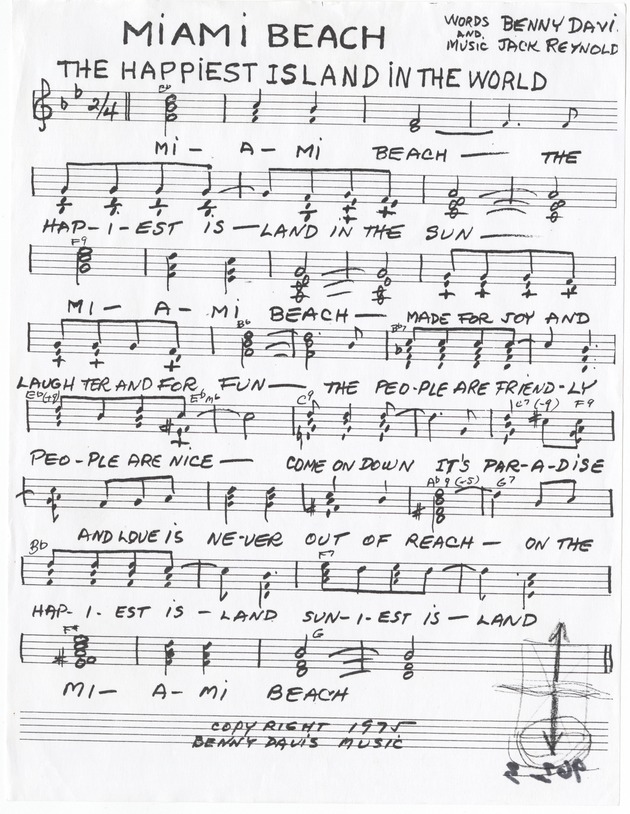 MiAMi BEACH
WORDS BENNY DAVI
AND
MUSIC JACK REYNOLD
THE HAPPIEST ISLAND iN THE WORLD
2/4
Mi - A - Mi BEACH — THE
HAP-I-EST IS — LAND IN THE SUN —
F9
MI - A - Mi BEACH — MADE FOR JOY AND
B♭6 B♭7
LAUGH TER AND FOR FUN — THE PEO-PLE ARE FRIEND-LY
E♭(+9) E♭m6 C9 C7(-9) F9
PEO-PLE ARE NICE — COME ON DOWN IT'S PAR-A-DISE
A♭9(-5) G7
AND LOVE IS NE-VER OUT OF REACH — ON THE
B♭ F7
HAP-I-EST iS - LAND SUN-I-EST iS — LAND
G
MI - A - Mi BEACH
COPY RIGHT 1975
BENNY DAVIS MUSIC